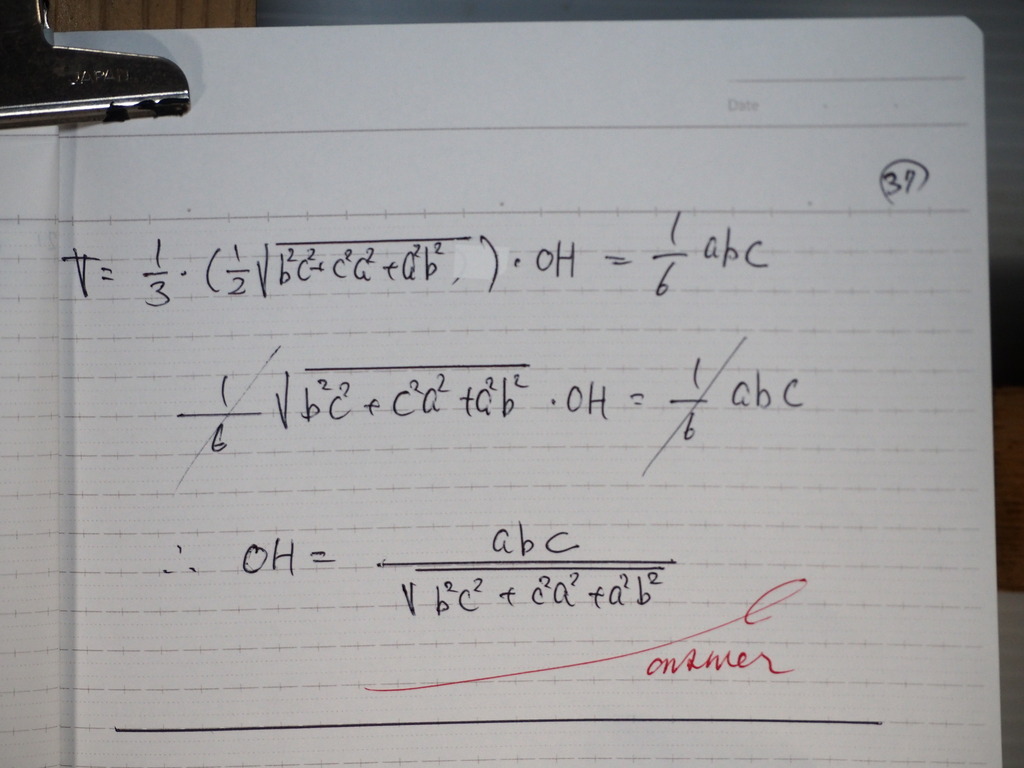 JAPAN
Date
37
V = 1/3 · (1/2 √(b²c² + c²a² + a²b²)) · OH = 1/6 abc
1/6 √(b²c² + c²a² + a²b²) · OH = 1/6 abc
∴ OH = abc / √(b²c² + c²a² + a²b²)
answer